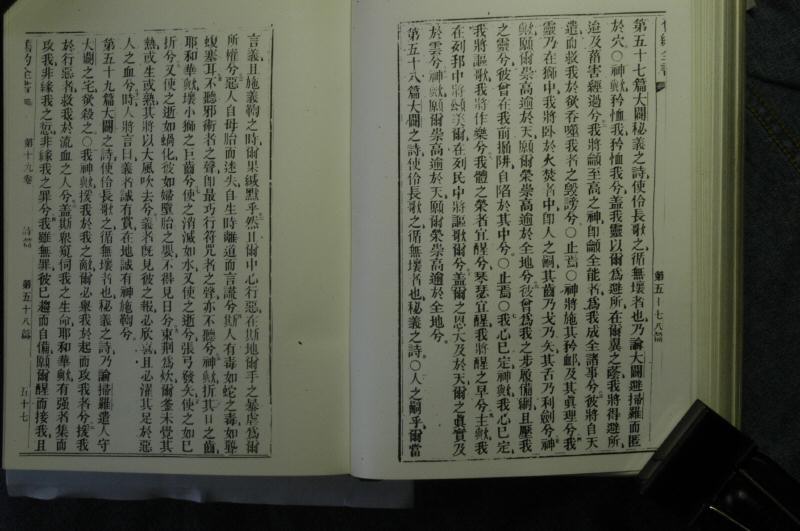 第五十七八篇
第五十七篇大闢秘義之詩使伶長歌之循無壞者也乃論大闢避掃羅而匿
於穴○神歟矜恤我矜恤我兮蓋我靈以爾為避所在爾翼之蔭我將得避所
迨及菑害經過兮我將籲至高之神卽籲全能者為我成全諸事兮彼將自天
遣而救我於欲吞噬我者之毀謗兮○止焉○神將施其矜卹及其眞理兮我
靈乃在獅中我將卧於火焚者中卽人之嗣其齒乃戈乃矢其舌乃利劍兮神
歟願爾崇高逾於天願爾榮崇高逾於全地兮彼曾為我之步履備網且壓我
之靈兮彼曾在我前掘阱自陷於其中兮○止焉○我心已定神歟我心已定
我將謳歌我將作樂兮我體之榮者宜醒兮琴瑟宜醒我將醒之早兮主歟我
在列邦中將頌美爾在列民中將謳歌爾兮蓋爾之恩大及於天爾之眞實及
於雲兮神歟願爾崇高逾於天願爾榮崇高逾於全地兮
第五十八篇大闢之詩使伶長歌之循無壞者也秘義之詩○人之嗣乎爾當
言義且施義鞫之時爾果緘默乎然且爾中心行惡在斯地爾手之暴虐為爾
所權兮惡人自母胎而迷失自生時離道而言謊兮斯人有毒如蛇之毒如聾
蝮塞耳不聽邪術者之聲卽最巧行符咒者之聲亦不聽兮神歟折其口之齒
耶和華歟壞小獅之巨齒兮使之消滅如水又使之逝兮張弓發矢使之如已
折兮又使之逝如蝸化彼如婦墮胎之嬰不得見日兮束荊為炊爾釜未覺其
熱或生或熟其將以大風吹去兮義者旣見彼之報必欣喜且必濯其足於惡
人之血兮時人將言曰義者誠有賞在地誠有神施鞫兮
第五十九篇大闢之詩使伶長歌之循無壞者也秘義之詩乃論掃羅遣人守
大闢之宅欲殺之○我神歟援我於我之敵爾必衆我於起而攻我者兮援我
於行惡者救我於流血之人兮蓋斯衆窺伺我之生命耶和華歟有强者集而
攻我非緣我之愆非緣我之罪兮我雖無罪彼已趨而自備願爾醒而接我且
舊約全書 第十九卷 詩篇 第五十八篇 五十七